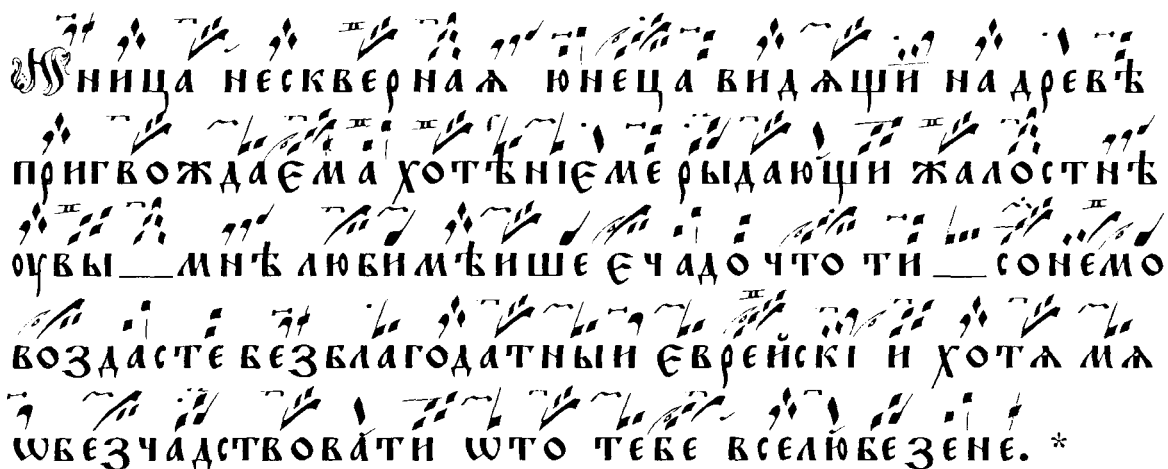 Юница нескверная юнеца видѧщи на древѣ
пригвождаєма хотѣнїєме рыдающи жалостнѣ
оувы мнѣ любимѣише є чадо что ти сонемо
воздасте безблагодатныи єврейскі и хотѧ мѧ
ѡбезчадствовати ѡто тебе вселюбезене. *